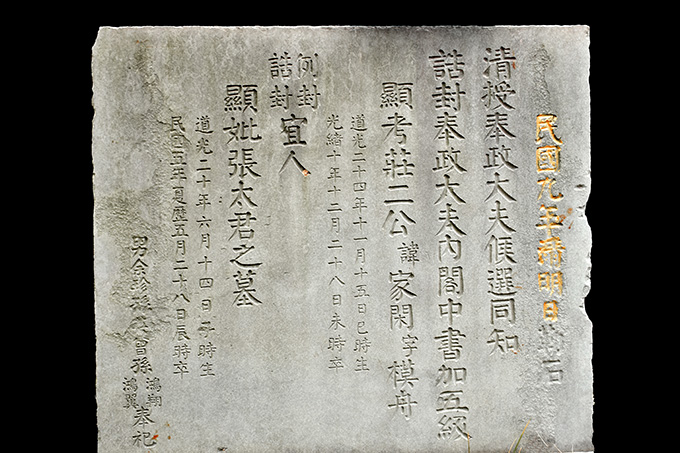 民國九年清明日勒石
清授奉政大夫候選同知
誥封奉政大夫內閣中書加五級
顯考莊二公諱家閑字模舟
道光二十四年十一月十五日巳時生
光緒十年十二月二十八日未時卒
例封
誥封宜人
顯妣張太君之墓
道光二十年六月十四日午時生
民國五年夏歷五月二十八日辰時卒
男余珍孫 曾孫鴻翔鴻翼奉祀